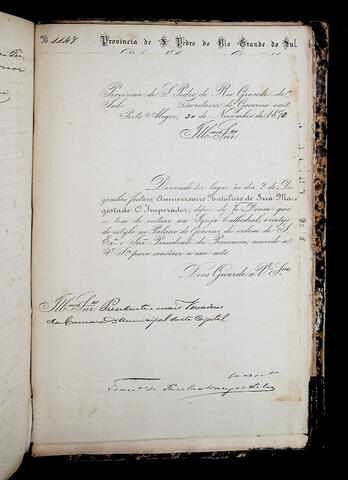 Nº 1147
Provincia de S. Pedro do Rio Grande do Sul.
Provincia de S. Pedro do Rio Grande do
Sul. Secretaria do Governo em
Porto Alegre, 30 de Novembro de 1872
Illmos Snres
Devendo ter lugar no dia 2 de De-
zembro futuro, Anniversario Natalicio de Sua Ma-
gestade O Imperador, depois do Te-Deum que
se tem de entoar na Igreja Cathedral, o cortejo
do estylo no Palacio do Governo, de ordem de S.
Exa o Snr. Presidente da Provincia, convido a
V. Sas para concorrer a esse acto.
Deos Guarde a V. Sas
Illmos Snres Presidente e mais Vereadores
da Camara Municipal desta Capital